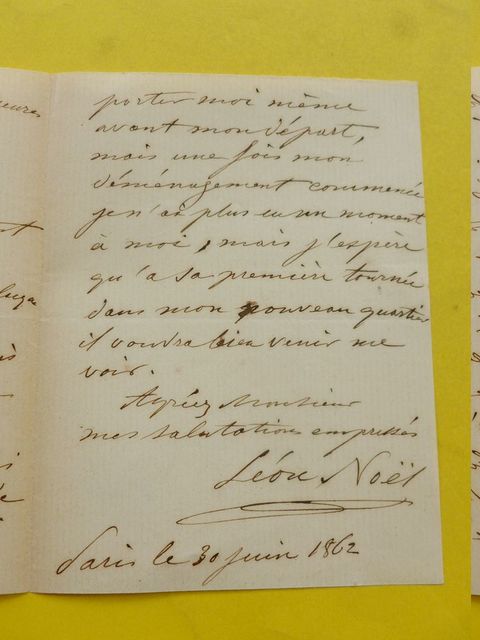 porter moi même
avant mon départ,
mais une fois mon
déménagement commencé
je n'ai plus eu un moment
à moi, mais j'espère
qu'a sa première tournée
dans mon nouveau quartier
il voudra bien venir me
voir.
Agréez Monsieur
mes salutations empressés
Léon Noël
Paris le 30 juin 1862